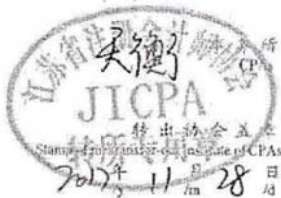 天衡
所
CP
江苏省注册会计师协会
JICPA
转所专用
转出协会盖章
Stamp of the transfer-out Institute of CPAs
2017年 11月 28日
/m /d